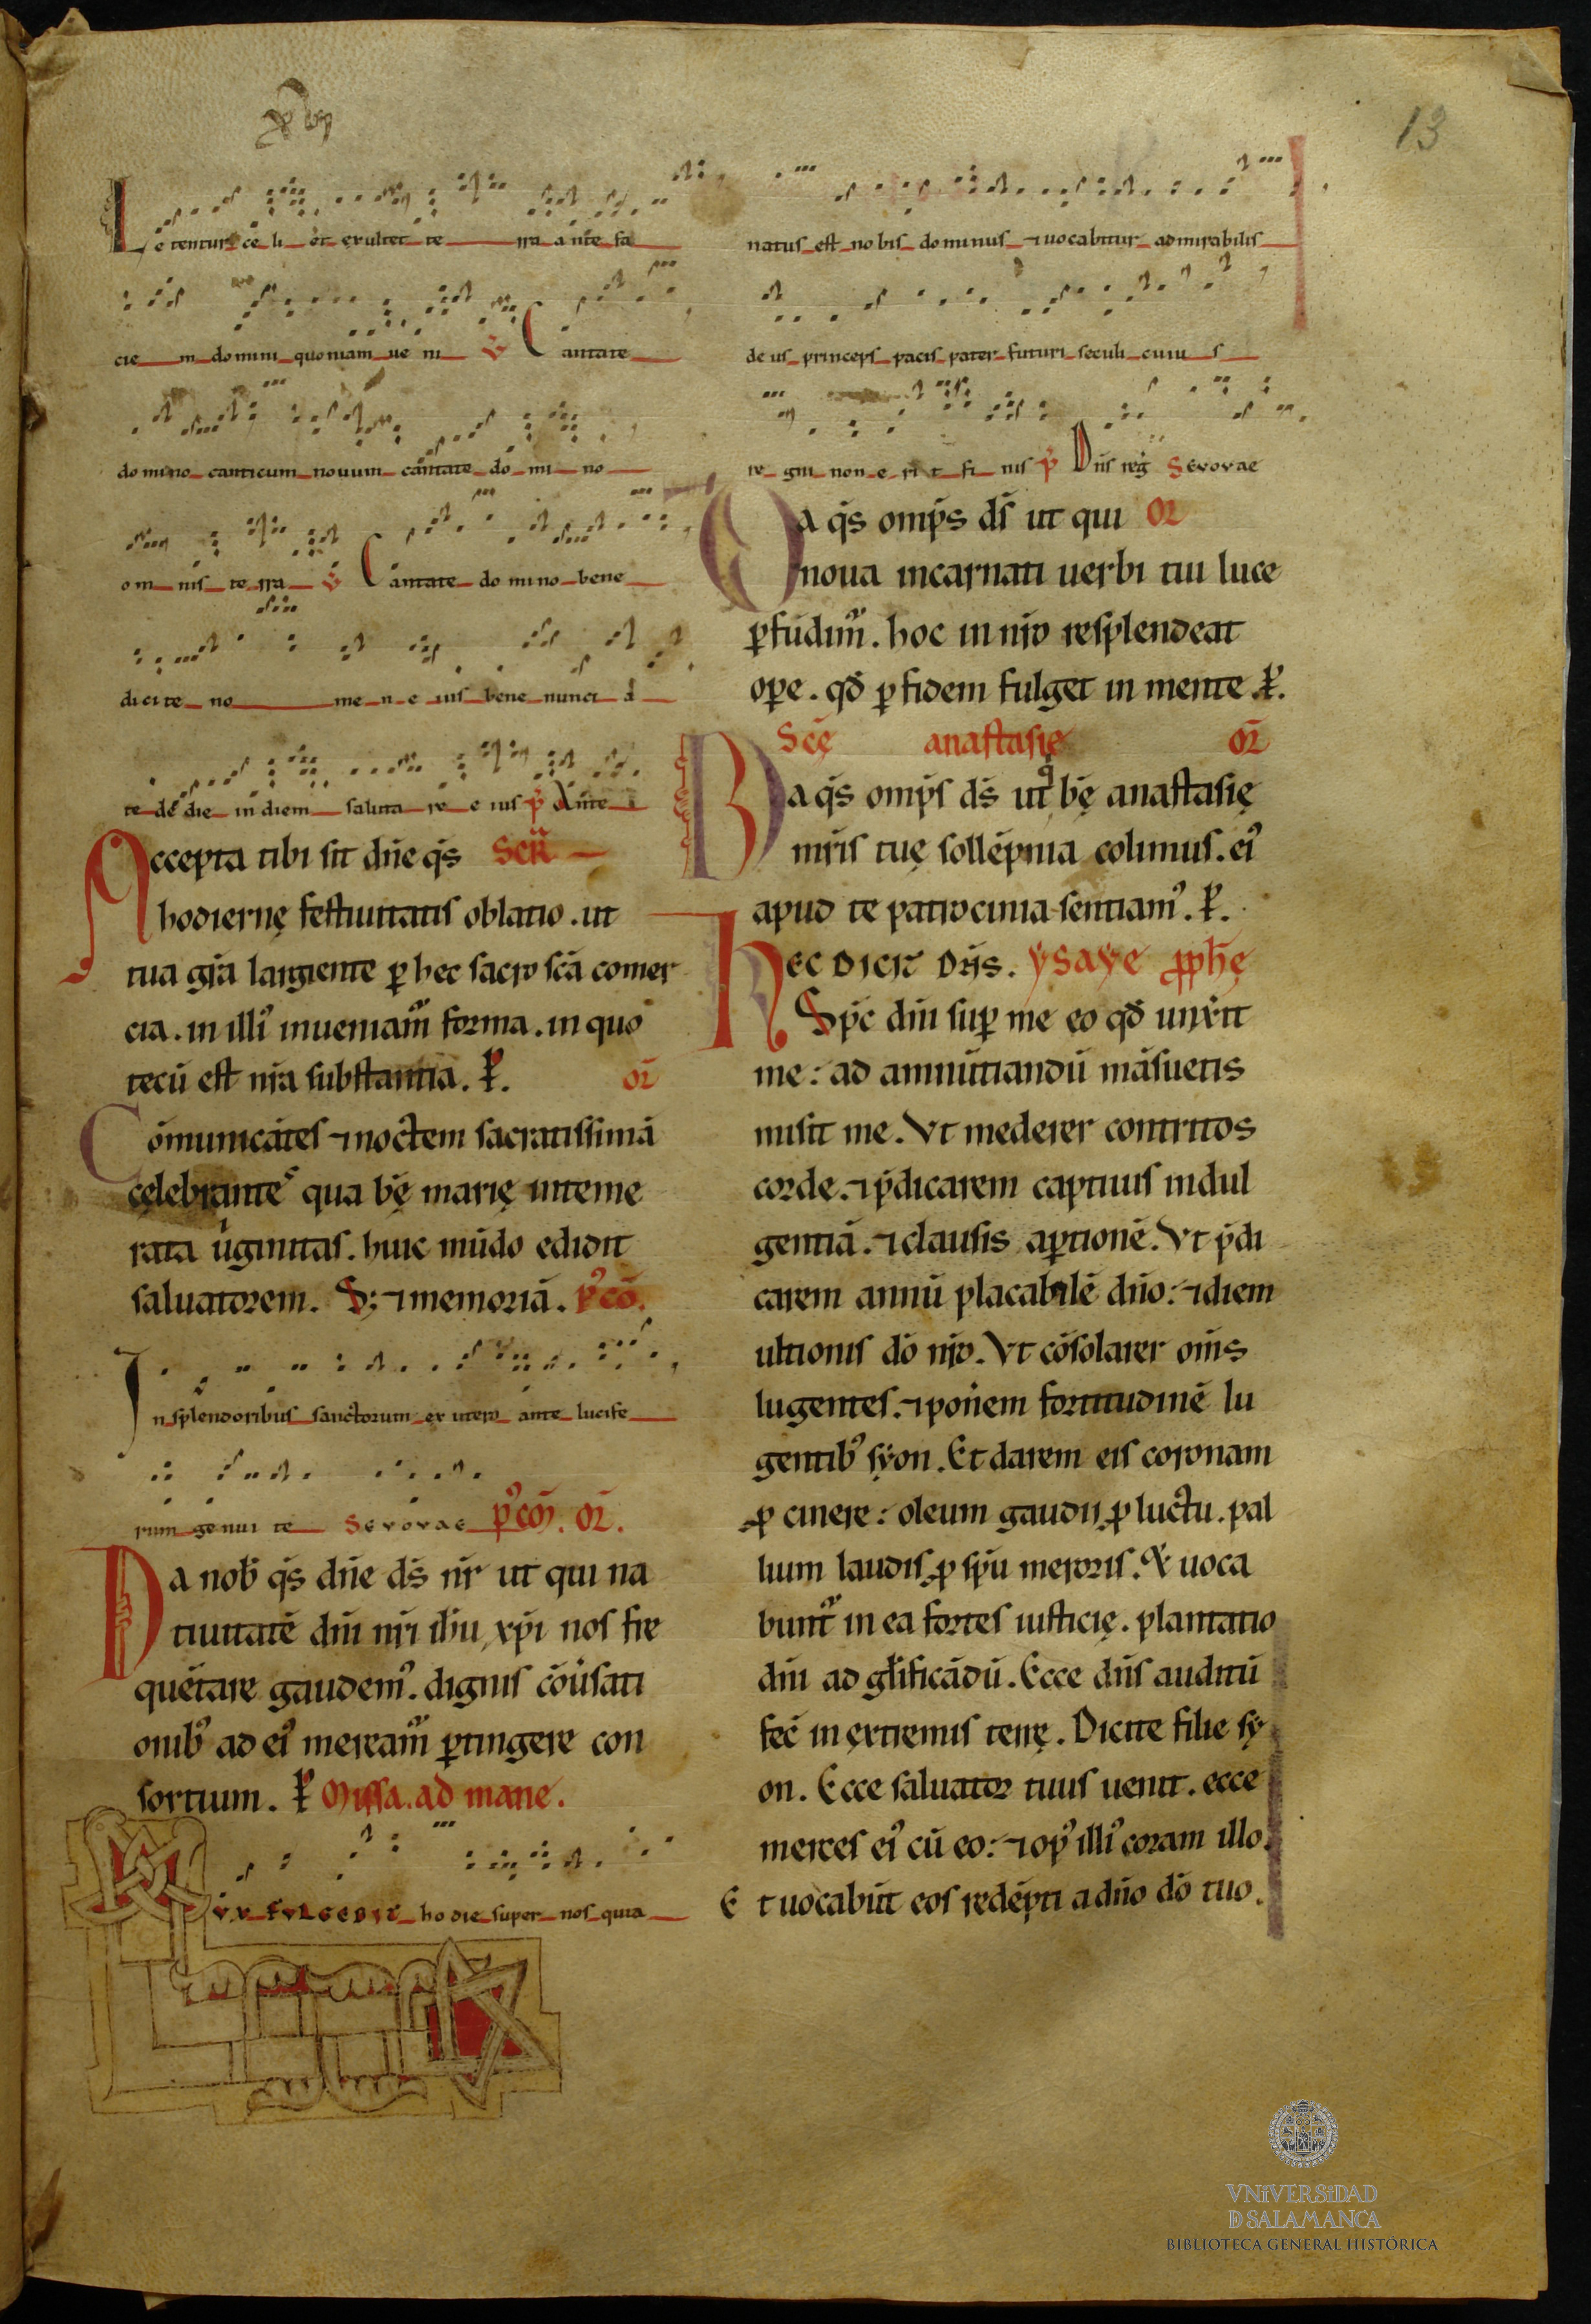 13
Letentur celi et exultet terra ante fa
cie m domini quoniam ueni Cantate
domino canticum nouum cantate domino
omnis terra Cantate domino bene
dicite nomen eius bene nuncia
te de die in diem salutare eius p̄ Ante
Accepta tibi sit dn̄e q̄s Secr̄
hodiernę festiuitatis oblatio. ut
tua gr̄a largiente ꝑ hec sacro sc̄a comer
cia. in illiꝰ inueniam᷑ forma. in quo
tecū est nr̄a substantia. P̄. or̄
Cōmunicātes ⁊ noctem sacratissimā
cęlebrantes qua bę̄ marię inteme
rata uͥginitas. huic mūdo edidit
saluatorem. S; ⁊ memoriā. p̄ꝰcō.
In splendoribus sanctorum ex utero ante lucife
rum genui te Seuouae pꝰcōm. or̄.
Da nob̄ q̄s dn̄e ds̄ nr̄ ut qui na
tiuitatē dn̄i nr̄i ih̄u xp̄i nos fre
quētare gaudemꝰ. dignis cōuͥsati
onibꝰ ad eiꝰ meream᷑ ꝑtingere con
sortium. P̄ Missa. ad mane.
Lux fulgebit hodie super nos quia
natus est nobis dominus ⁊ uocabitur admirabilis
deus princeps pacis pater futuri seculi cuius
regni non erit finis p̄ Dn̄s reḡ Seuouae
Da q̄s omp̄s ds̄ ut qui or̄
noua incarnati uerbi tui luce
ꝑfūdim᷑. hoc in nr̄o resplendeat
opere. qđ ꝑ fidem fulget in mente. P̄.
Scę̄ anastasię or̄
Da q̄s omp̄s ds̄ ut qͥ bę̄ anastasię
mr̄is tuę sollēpnia colimus. eiꝰ
apud te patrocinia sentiamꝰ. P̄.
Hec dicit dn̄s. ysaye ꝓph̄ę
Sp̄c dn̄i suꝑ me eo qđ unxit
me: ad annūtiandū māsuetis
misit me. Vt mederer contritos
corde. ⁊ p̄dicarem captiuis indul
gentiā. ⁊ clausis aꝑtionē. Vt p̄di
carem annū placabilē dn̄o: ⁊ diem
ultionis dō nr̄o. Vt cōsolarer om̄s
lugentes. ⁊ pon̄em fortitudinē lu
gentibꝰ syon. Et darem eis coronam
ꝓ cinere: oleum gaudii ꝓ luctu. pal
lium laudis ꝓ sp̄u meroris. Et uoca
bunt᷑ in ea fortes iusticię. plantatio
dn̄i ad gl̄ificādū. Ecce dn̄s auditū
fec̄ in extremis terrę. Dicite filie sy
on. Ecce saluator tuus uenit. ecce
merces eiꝰ cū eo: ⁊ opꝰ illiꝰ coram illo.
Et uocabūt eos redēpti a dn̄o dō tuo.
VNiVERSiDAD
D SALAMANCA
BIBLIOTECA GENERAL HISTÓRICA